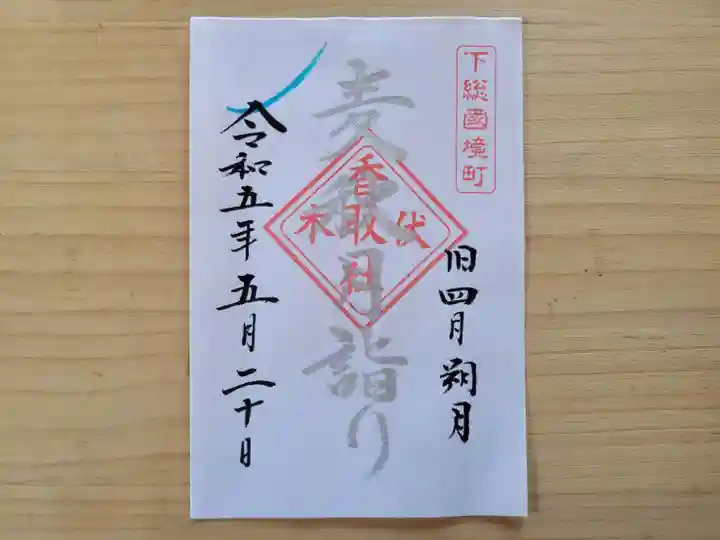 下総國境町
旧四月朔月
麦秋月詣り
香取
伏木
社
令和五年五月二十日